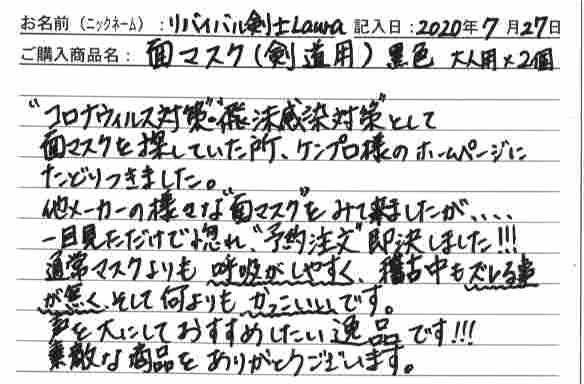 お名前（ニックネーム）：リバイバル剣士Laura 記入日：2020年7月27日
ご購入商品名： 面マスク（剣道用）黒色 大人用×2個
"コロナウィルス対策""飛沫感染対策"として
面マスクを探していた所、ケンプロ様のホームページに
たどりつきました。
他メーカーの様々な"面マスク"をみて来ましたが、、、、
一目見ただけで惚れ、"予約注文"即決しました!!!
通常マスクよりも 呼吸がしやすく、稽古中もズレる事
が無く、そして何よりも かっこいいです。
声を大にしておすすめしたい逸品です!!!
素敵な商品をありがとうございます。